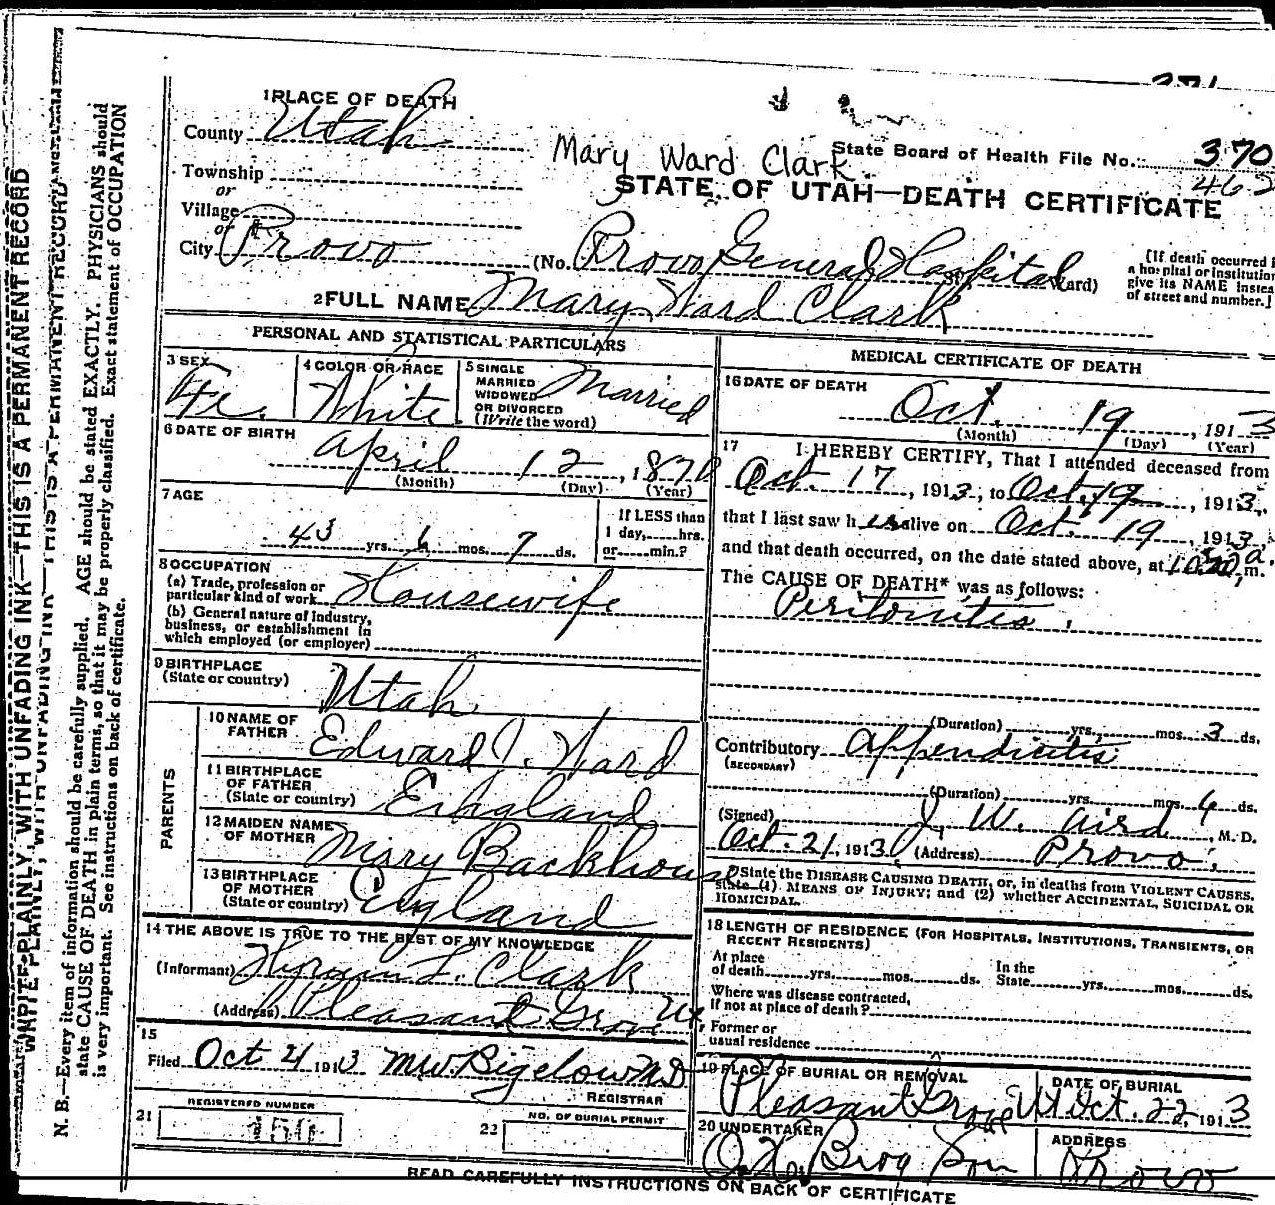 1 PLACE OF DEATH
County Utah
Mary Ward Clark
State Board of Health File No. 370
462
Township
or
Village
or
City Provo
STATE OF UTAH—DEATH CERTIFICATE
(No. Provo General Hospital St. Ward)
[If death occurred i
a hospital or institution
give its NAME instea
of street and number.]
2 FULL NAME Mary Ward Clark
PERSONAL AND STATISTICAL PARTICULARS
3 SEX Fe.
4 COLOR OR RACE White
5 SINGLE
MARRIED
WIDOWED
OR DIVORCED
(Write the word)
Married
6 DATE OF BIRTH
April 12, 1870
(Month) (Day) (Year)
7 AGE
43 yrs. 6 mos. 7 ds.
If LESS than
1 day, hrs.
or min.?
8 OCCUPATION
(a) Trade, profession or
particular kind of work Housewife
(b) General nature of industry,
business, or establishment in
which employed (or employer)
9 BIRTHPLACE
(State or country) Utah
PARENTS
10 NAME OF
FATHER Edward J. Ward
11 BIRTHPLACE
OF FATHER
(State or country) England
12 MAIDEN NAME
OF MOTHER Mary Backhouse
13 BIRTHPLACE
OF MOTHER
(State or country) England
14 THE ABOVE IS TRUE TO THE BEST OF MY KNOWLEDGE
(Informant) Hyrum L. Clark
(Address) Pleasant Grove Ut
15
Filed Oct 21 1913 M W. Bigelow M D
REGISTRAR
21 REGISTERED NUMBER
22 NO. OF BURIAL PERMIT
MEDICAL CERTIFICATE OF DEATH
16 DATE OF DEATH
Oct. 19, 1913
(Month) (Day) (Year)
17 I HEREBY CERTIFY, That I attended deceased from
Oct. 17, 1913, to Oct. 19, 1913,
that I last saw her alive on Oct. 19, 1913,
and that death occurred, on the date stated above, at a. m.
The CAUSE OF DEATH* was as follows:
Peritonitis.
(Duration) yrs. mos. 3 ds.
Contributory Appendicitis
(SECONDARY)
(Duration) yrs. mos. 6 ds.
(Signed) J. W. Aird, M. D.
Oct. 21, 1913 (Address) Provo.
*State the DISEASE CAUSING DEATH, or, in deaths from VIOLENT CAUSES,
state (1) MEANS OF INJURY; and (2) whether ACCIDENTAL, SUICIDAL OR
HOMICIDAL.
18 LENGTH OF RESIDENCE (FOR HOSPITALS, INSTITUTIONS, TRANSIENTS, OR
RECENT RESIDENTS)
At place
of death yrs. mos. ds.
In the
State yrs. mos. ds.
Where was disease contracted,
if not at place of death?
Former or
usual residence
19 PLACE OF BURIAL OR REMOVAL
Pleasant Grove Ut
DATE OF BURIAL
Oct. 22, 1913
20 UNDERTAKER
Berg Son
ADDRESS
Provo
READ CAREFULLY INSTRUCTIONS ON BACK OF CERTIFICATE
WRITE PLAINLY, WITH UNFADING INK—THIS IS A PERMANENT RECORD
N. B.—Every item of information should be carefully supplied. AGE should be stated EXACTLY. PHYSICIANS should
state CAUSE OF DEATH in plain terms, so that it may be properly classified. Exact statement of OCCUPATION
is very important. See instructions on back of certificate.